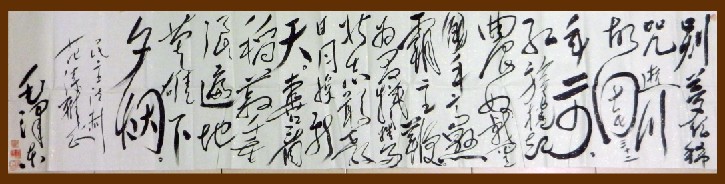 别梦依稀
咒逝川
故园三十
二年前
红旗卷起
农奴戟黑
手高悬
霸主鞭
为有牺牲多
壮志敢教
日月换新
天喜看
稻菽千
重浪遍地
英雄下
夕烟
毛泽东